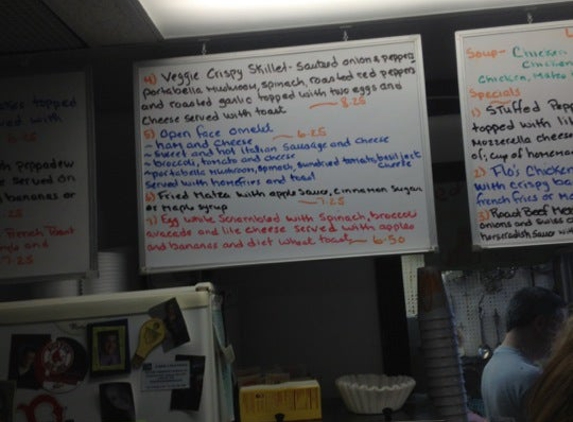 topped
with
6.25
th peppadew
e served on
bananas or
25
French Toast
and
7.25
4) Veggie Crispy Skillet - Sauteed onion & pepper
portabella mushroom, spinach, roasted red peppers
and roasted garlic topped with two eggs and
cheese served with toast 8.25
5) Open face omelet 6.25
~ ham and cheese
~ sweet and hot Italian sausage and cheese
~ broccoli, tomato and cheese
~ portabella mushroom, spinach, sundried tomato, basil, jack cheese
served with homefries and toast
6) Fried Matza with apple sauce, cinnamon sugar
or maple syrup 7.25
7) Egg white scrambled with spinach, broccoli
avocado and lite cheese served with apples
and bananas and diet wheat toast 6.50
Soup - Chicken
Chicken
Chicken, Matza
Specials
1) Stuffed Pepp
topped with
Mozzerella cheese
of, cup of homema
2) Flo's Chicken
with crispy ba
french fries or
3) Roast Beef Mel
onions and swiss c
horseradish sauce with